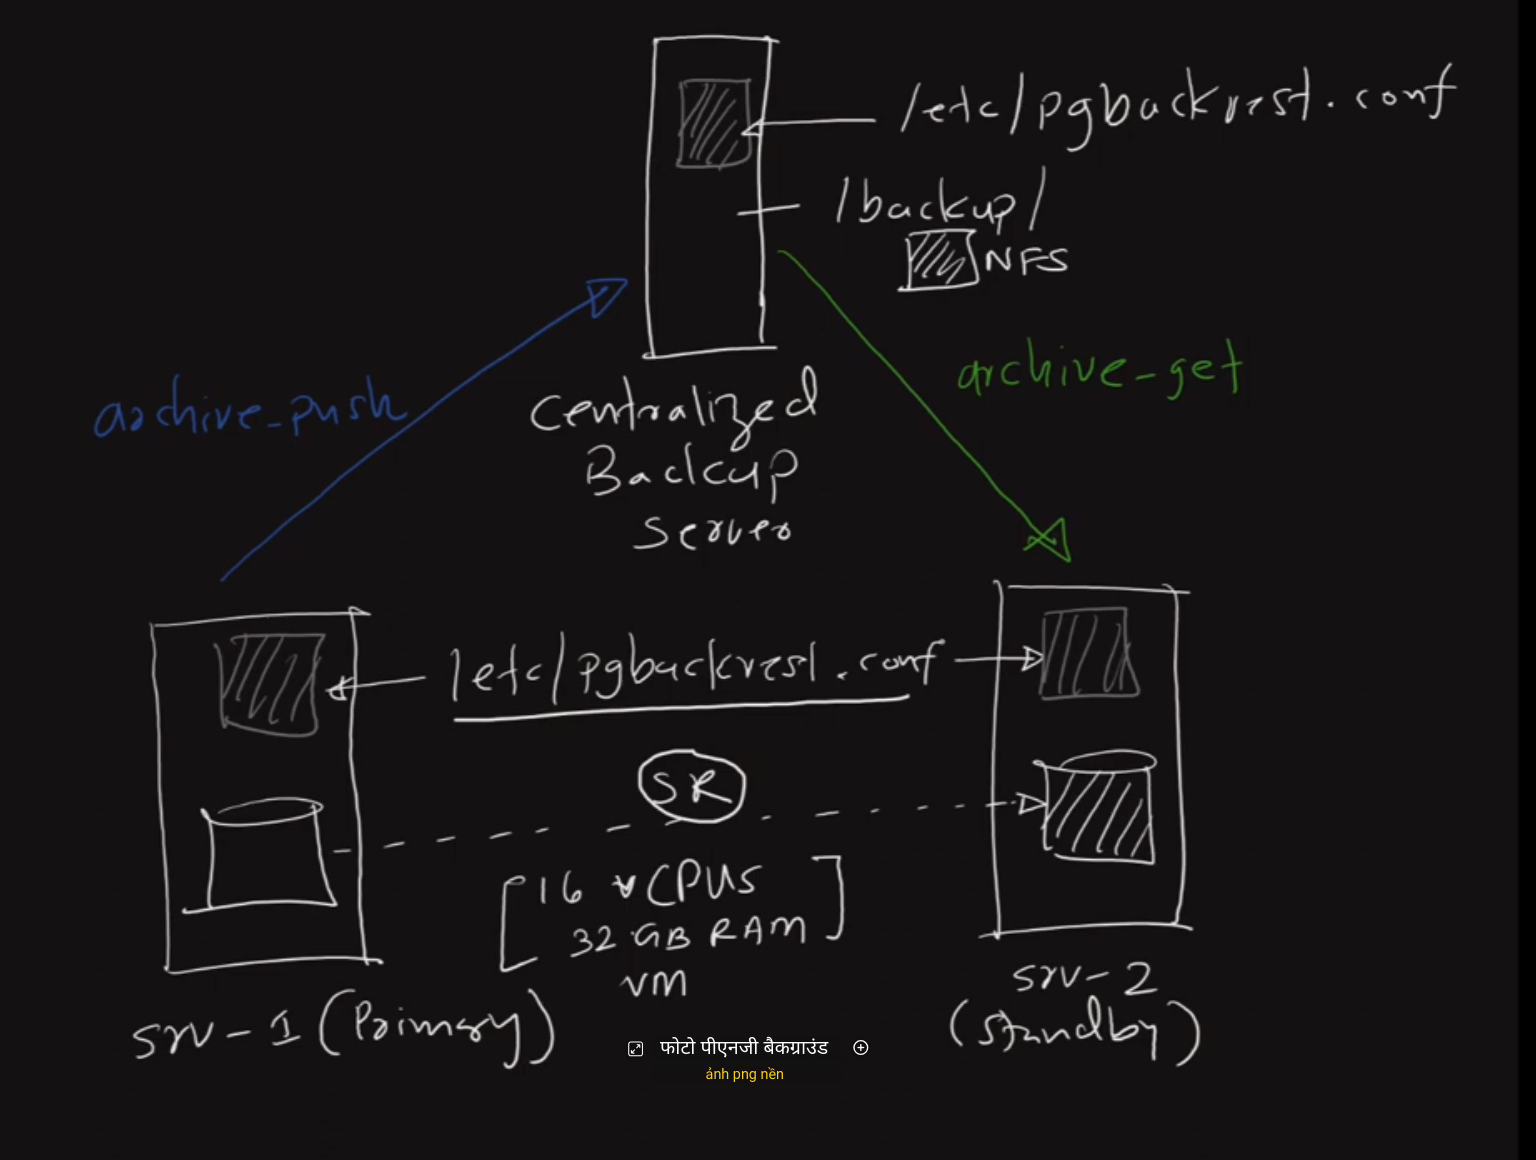 /etc/pgbackrest.conf
/backup/
NFS
archive-get
archive-push
Centralized
Backup
Server
/etc/pgbackrest.conf
SR
[16 vCPUs
32 GB RAM]
VM
srv-1 (Primary)
srv-2
(Standby)
फोटो पीएनजी बैकग्राउंड
ảnh png nền